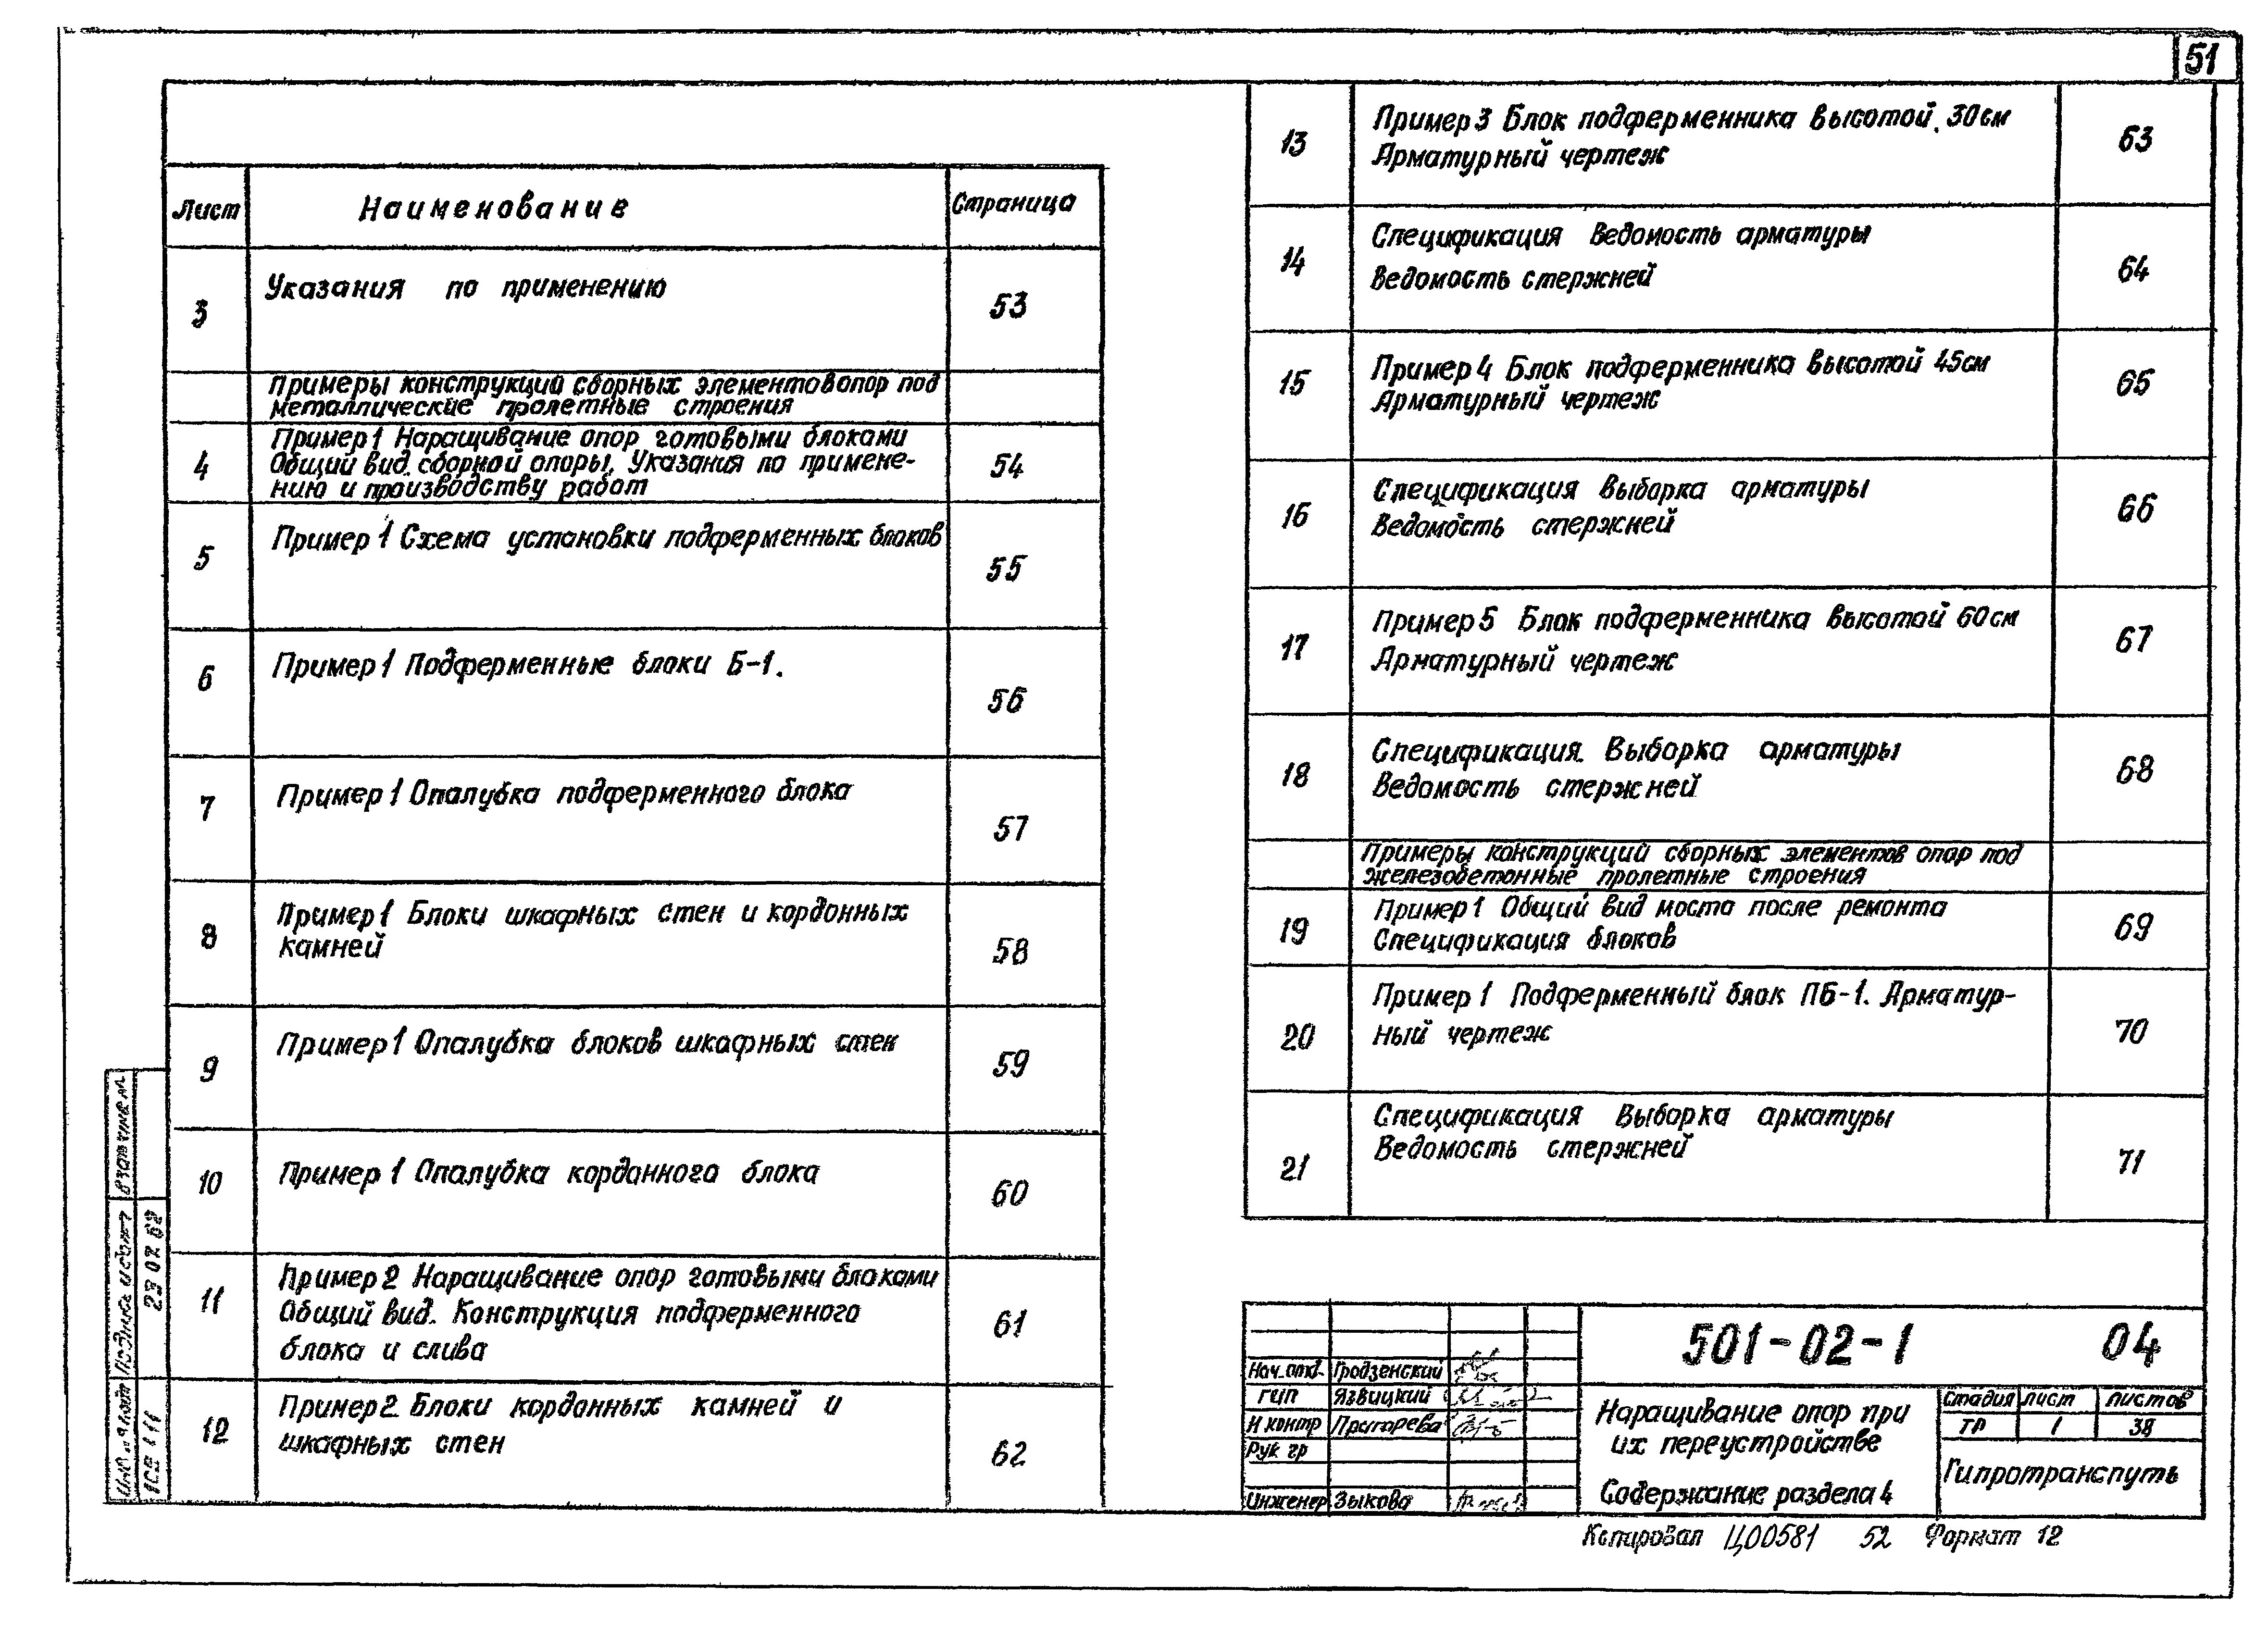 51
Лист Наименование Страница
3 Указания по применению 53
Примеры конструкций сборных элементов опор под
металлические пролетные строения
4 Пример 1 Наращивание опор готовыми блоками
Общий вид сборной опоры. Указания по примене-
нию и производству работ 54
5 Пример 1 Схема установки подферменных блоков 55
6 Пример 1 Подферменные блоки Б-1. 56
7 Пример 1 Опалубка подферменного блока 57
8 Пример 1 Блоки шкафных стен и кордонных
камней 58
9 Пример 1 Опалубка блоков шкафных стен 59
10 Пример 1 Опалубка кордонного блока 60
11 Пример 2 Наращивание опор готовыми блоками
Общий вид. Конструкция подферменного
блока и слива 61
12 Пример 2 Блоки кордонных камней и
шкафных стен 62
13 Пример 3 Блок подферменника высотой 30 см
Арматурный чертеж 63
14 Спецификация Ведомость арматуры
Ведомость стержней 64
15 Пример 4 Блок подферменника высотой 45 см
Арматурный чертеж 65
16 Спецификация Выборка арматуры
Ведомость стержней 66
17 Пример 5 Блок подферменника высотой 60 см
Арматурный чертеж 67
18 Спецификация. Выборка арматуры
Ведомость стержней 68
Примеры конструкций сборных элементов опор под
железобетонные пролетные строения
19 Пример 1 Общий вид моста после ремонта
Спецификация блоков 69
20 Пример 1 Подферменный блок ПБ-1. Арматур-
ный чертеж 70
21 Спецификация Выборка арматуры
Ведомость стержней 71
501-02-1 04
Нач. отд. Гродзенский
ГИП Язвицкий
Н контр
Рук гр
Инженер Зыкова
Наращивание опор при
их переустройстве
Содержание раздела 4
Стадия Лист Листов
ТР 1 38
Гипротранспуть
Копировал Ц00581 52 Формат 12